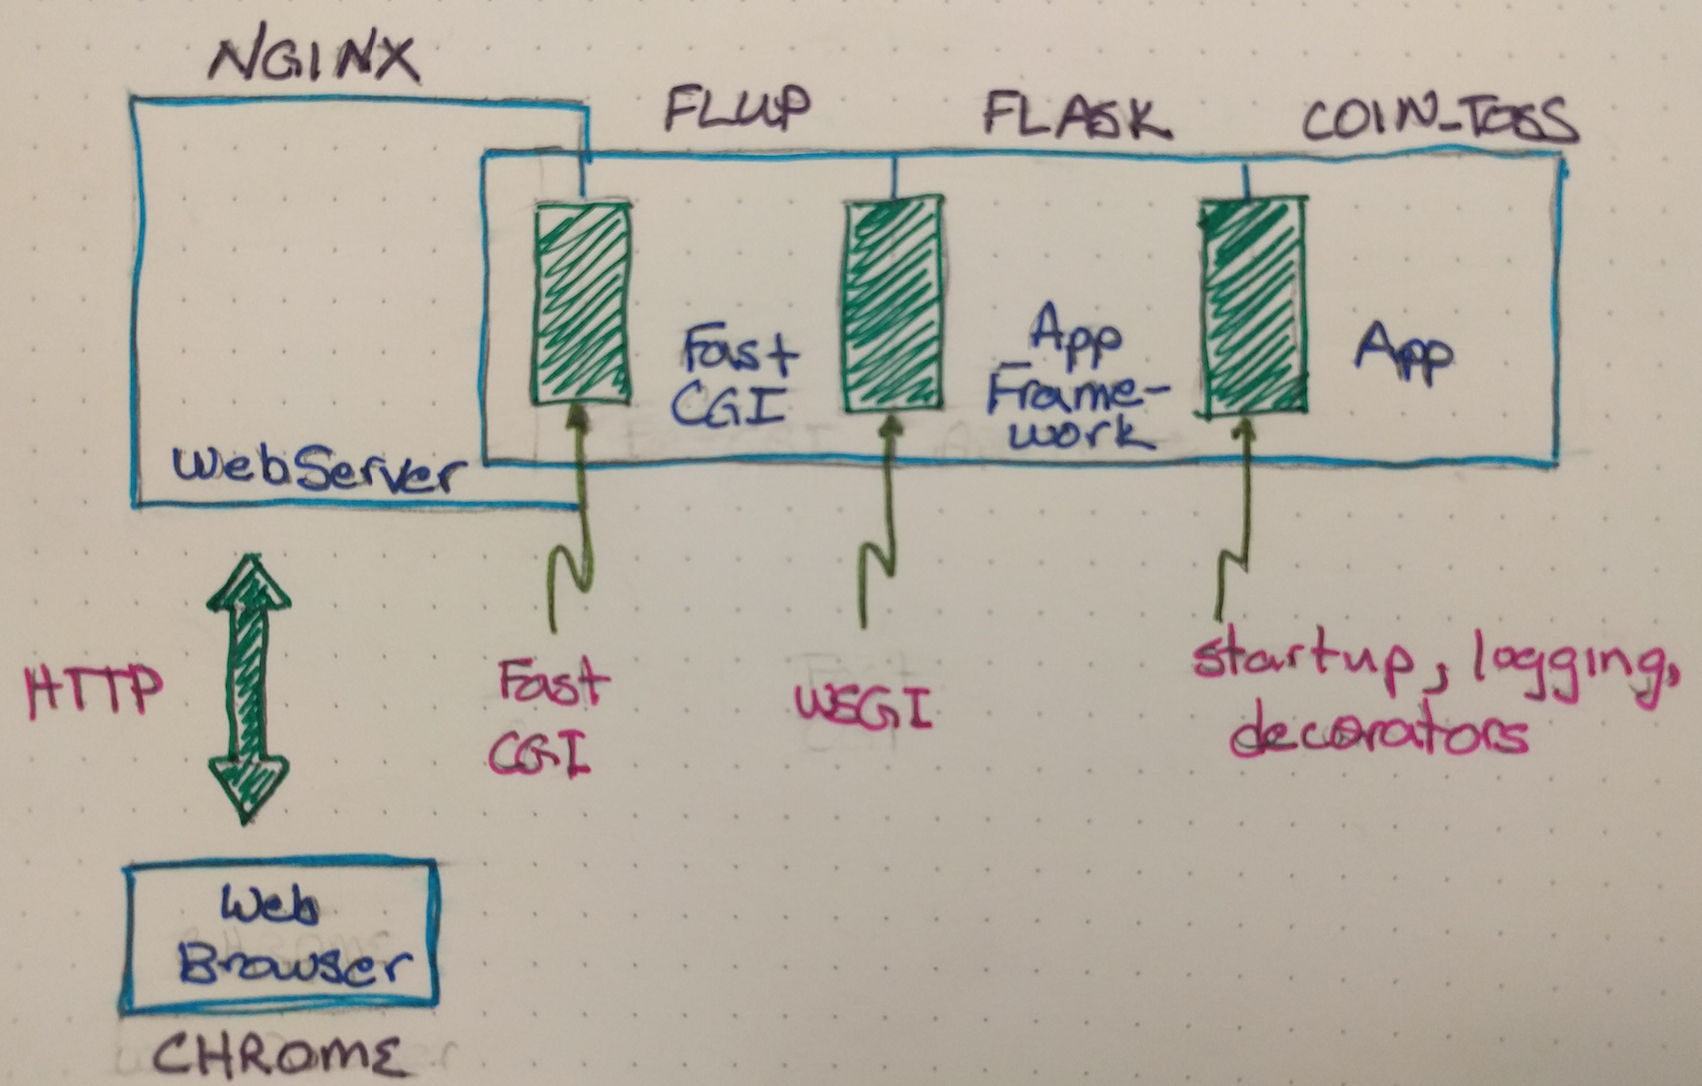 NGINX
FLUP
FLASK
COIN_TOSS
Fast
CGI
App
Frame-
work
App
WebServer
HTTP
Fast
CGI
WSGI
startup, logging,
decorators
Web
Browser
CHROME